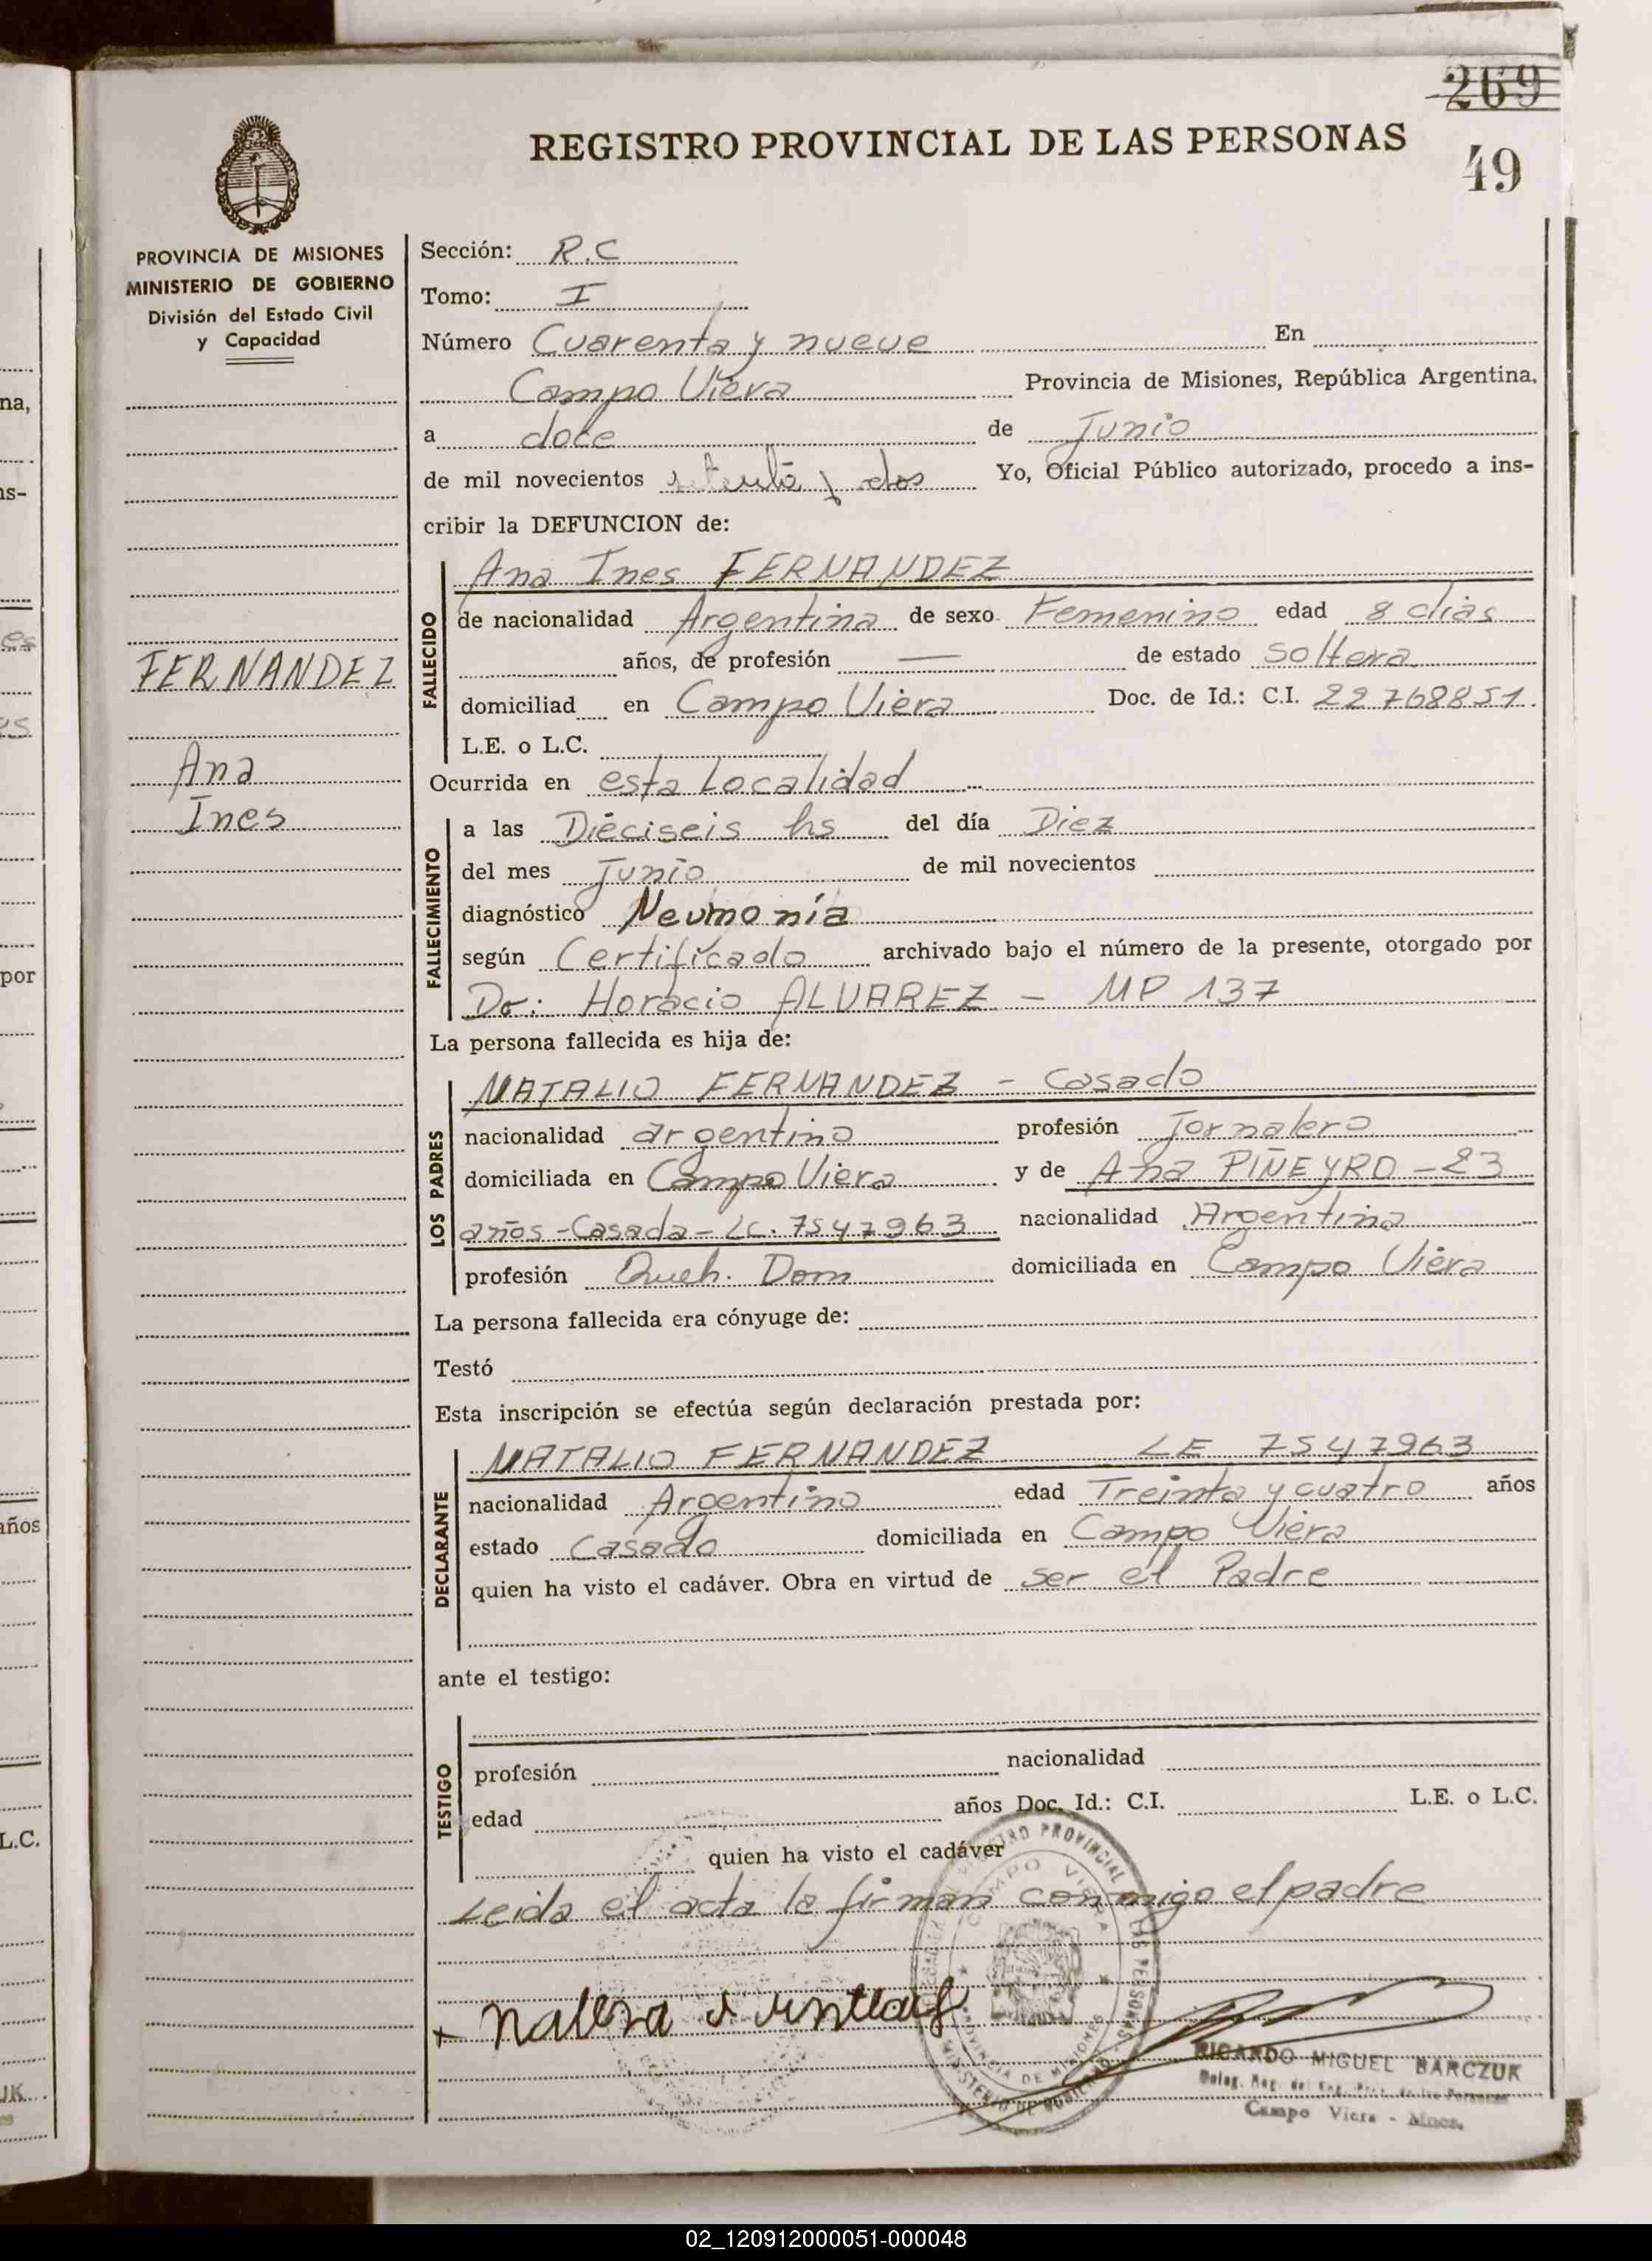 269
REGISTRO PROVINCIAL DE LAS PERSONAS
49
PROVINCIA DE MISIONES
MINISTERIO DE GOBIERNO
División del Estado Civil
y Capacidad
FERNANDEZ
Ana
Ines
Sección: R.C
Tomo: I
Número Cuarenta y nueve En
Campo Viera Provincia de Misiones, República Argentina,
a doce de Junio
de mil novecientos setenta y dos Yo, Oficial Público autorizado, procedo a ins-
cribir la DEFUNCION de:
FALLECIDO
Ana Ines FERNANDEZ
de nacionalidad Argentina de sexo Femenino edad 8 dias
años, de profesión — de estado soltera
domiciliad en Campo Viera Doc. de Id.: C.I. 22768851.
L.E. o L.C.
Ocurrida en esta Localidad
FALLECIMIENTO
a las Dieciseis hs del día Diez
del mes Junio de mil novecientos
diagnóstico Neumonía
según Certificado archivado bajo el número de la presente, otorgado por
Dr: Horacio ALVAREZ - MP 137
La persona fallecida es hija de:
LOS PADRES
NATALIO FERNANDEZ - Casado
nacionalidad argentino profesión Jornalero
domiciliada en Campo Viera y de Ana PIÑEYRO - 23
años - Casada - LC. 7547963 nacionalidad Argentina
profesión Queh. Dom domiciliada en Campo Viera
La persona fallecida era cónyuge de:
Testó
Esta inscripción se efectúa según declaración prestada por:
DECLARANTE
NATALIO FERNANDEZ LE 7547963
nacionalidad Argentino edad Treinta y cuatro años
estado Casado domiciliada en Campo Viera
quien ha visto el cadáver. Obra en virtud de ser el Padre
ante el testigo:
TESTIGO
profesión nacionalidad
edad años Doc. Id.: C.I. L.E. o L.C.
quien ha visto el cadáver
Leida el acta la firman conmigo el padre
CAMPO VIERA
PROVINCIA DE MISIONES
RICARDO MIGUEL BARCZUK
Campo Viera - Mnes.
na,
ns-
es
por
años
L.C.
UK
02_120912000051-000048